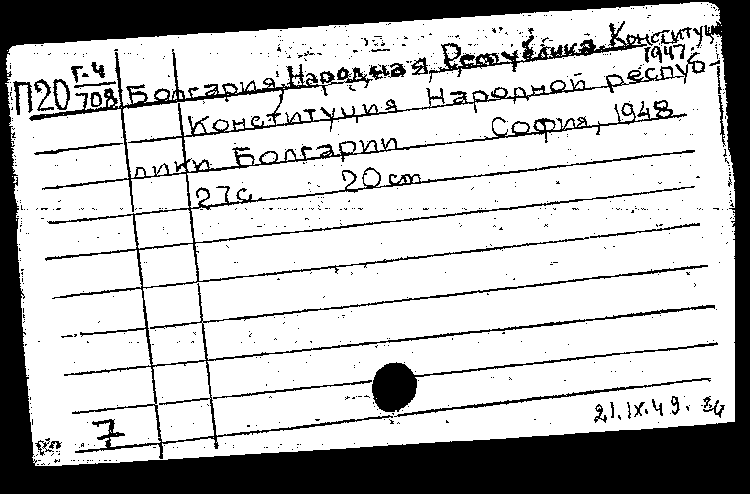 П20 Г-4/708 Болгария, Народная Республика. Конституция
1947г.
Конституция Народной респуб-
лики Болгарии София, 1948
27с. 20 cm.
7 21.IX.49.